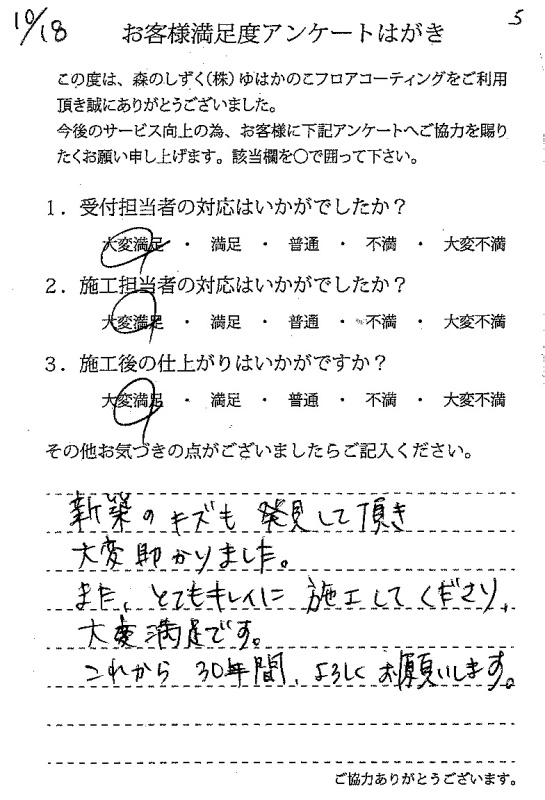 10/18
5
お客様満足度アンケートはがき
この度は、森のしずく(株)ゆはかのこフロアコーティングをご利用
頂き誠にありがとうございました。
今後のサービス向上の為、お客様に下記アンケートへご協力を賜り
たくお願い申し上げます。該当欄を〇で囲って下さい。
1．受付担当者の対応はいかがでしたか？
大変満足 ・ 満足 ・ 普通 ・ 不満 ・ 大変不満
2．施工担当者の対応はいかがでしたか？
大変満足 ・ 満足 ・ 普通 ・ 不満 ・ 大変不満
3．施工後の仕上がりはいかがですか？
大変満足 ・ 満足 ・ 普通 ・ 不満 ・ 大変不満
その他お気づきの点がございましたらご記入ください。
新築のキズも発見して頂き
大変助かりました。
また、とてもキレイに施工してくださり、
大変満足です。
これから30年間、よろしくお願いします。
ご協力ありがとうございます。